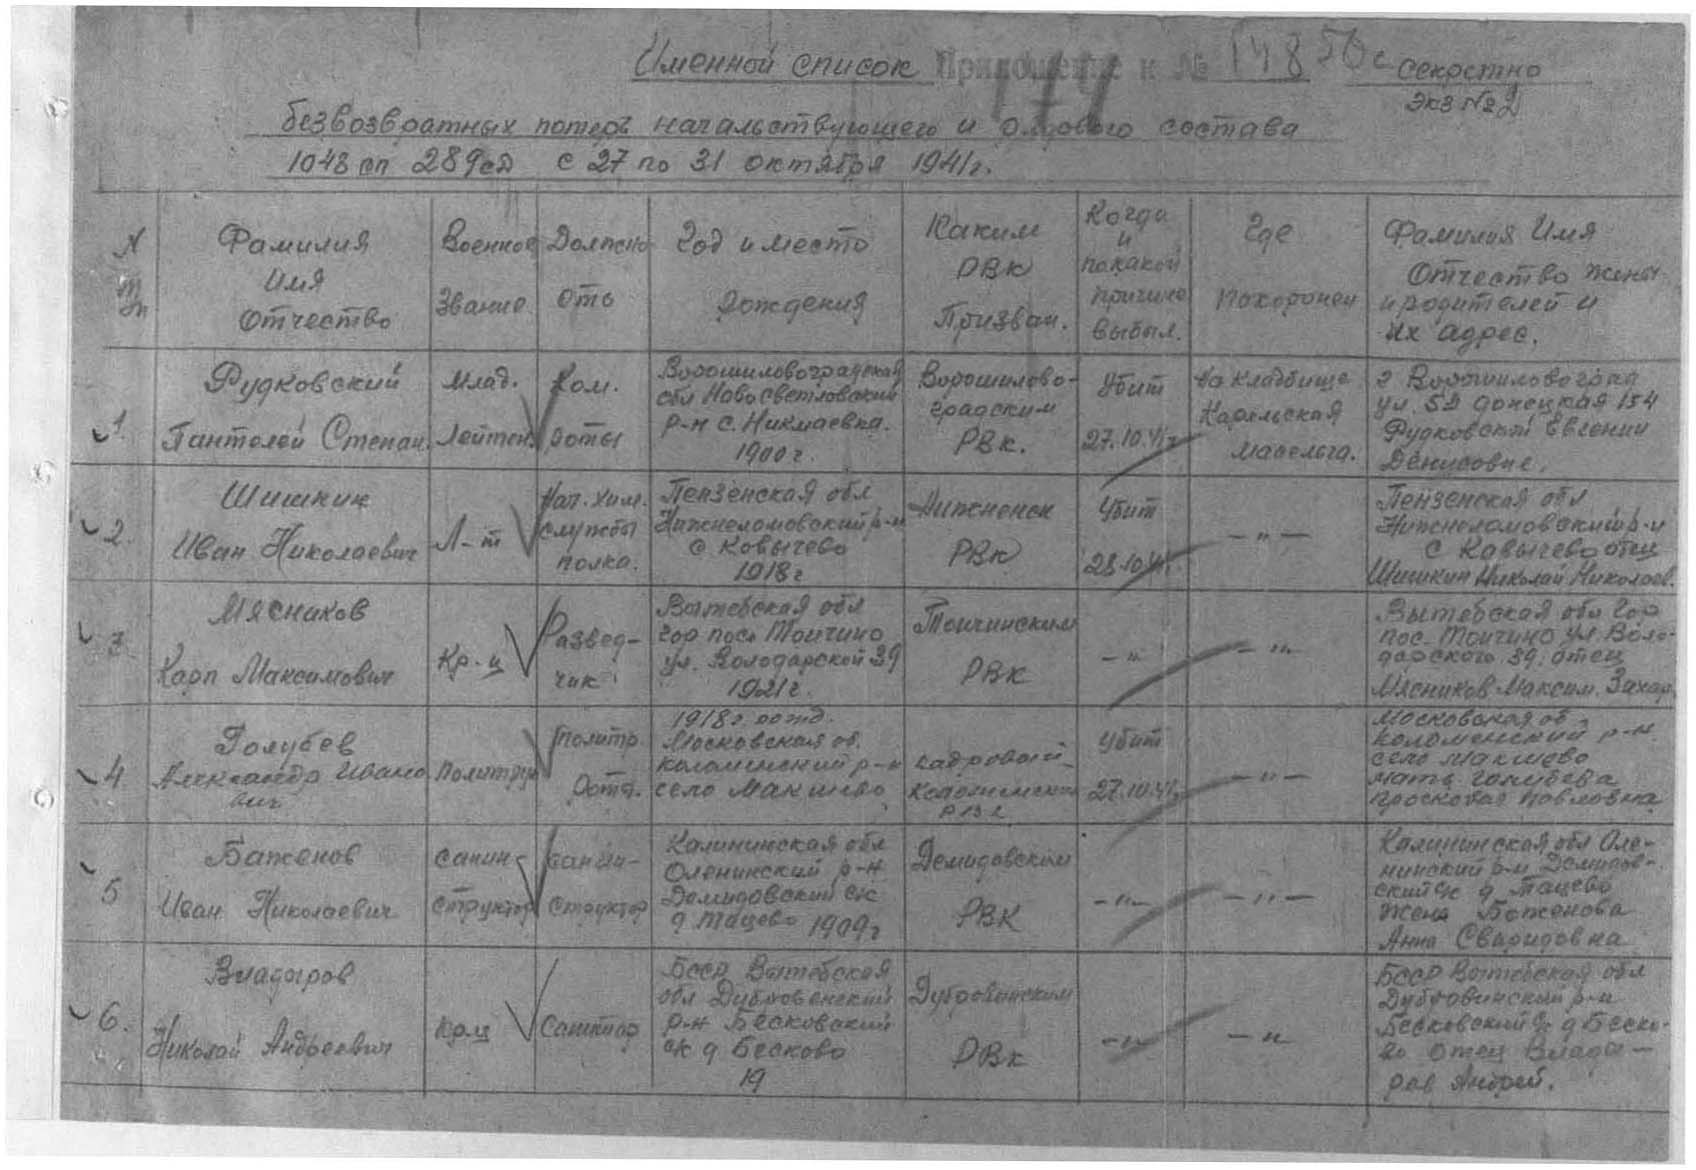 Именной список Приложение к № 14850с Секретно
174
Экз №2
безвозвратных потерь начальствующего и рядового состава
1048 сп 289сд с 27 по 31 октября 1941г.
N
пп
Фамилия
Имя
Отчество
Военное
Звание
Должно
сть
Год и место
Рождения
Каким
РВК
Призван.
Когда
и
по какой
причине
выбыл.
Где
похоронен
Фамилия Имя
Отчество жены
и родителей и
их адрес.
1.
Рудковский
Пантелей Степан.
Млад.
Лейтен.
Ком.
роты
Ворошиловоградская
обл Ново Светловский
р-н с. Никлаевка.
1900г.
Ворошилово-
градским
РВк.
Убит
27.10.41г
На кладбище
Карельская
Масельга.
г Ворошиловоград
ул. 5я донецкая 154
Рудковской Евгении
Денисовне.
2.
Шишкин
Иван Николаевич
Л-т
Нач. хим.
службы
полка.
Пензенская обл
Нижнеломовский р-н
с Ковычево
1918г
Нижненск
РВк
Убит
28.10.41г.
-"-
Пензенская обл
Нижнеломовский р-н
с Кавычево отец
Шишкин Николай Николаев.
3
Мясников
Карп Максимович
Кр-ц
Развед-
чик
Вытебская обл
гор пос. Толчино
ул. Володарской 39
1921г.
Толчинским
РВК
-"-
-"-
Вытебская обл Гор
пос. Толчино ул. Воло-
дарского 39. отец
Мясников Максим. Захар.
4
Голубев
Александр Ивано
вич
Политрук
Политр.
Рота.
1918г. рожд.
Московская об.
Коломенский р-н
село Макшево
кадровый
Коломенски
РВк
Убит
27.10.41г
-"-
Московская об
Коломенский р-н
село Макшево
мать Голубева
Просковья Павловна
5
Баженов
Иван Николаевич
санин-
структор
санин-
структор
Калининская обл
Оленинский р-н
Демидовский с/с
д Тацево 1909г
Демидовским
РВК
-"-
-"-
Калининская обл Оле-
нинский р-н Демидов-
ский с/с д Тацево
жена Баженова
Анна Сваридовна
6.
Владыров
Николай Андреевич
Кр.ц
Санитар
БССР Вытебская
обл Дубровенский
р-н Бесковский
с/с д Бесково
19
Дубровинским
РВк
-"-
-"-
БССР Вытебская обл
Дубровинский р-н
Бесковский с/с д Беско-
во отец Влады-
ров Андрей.